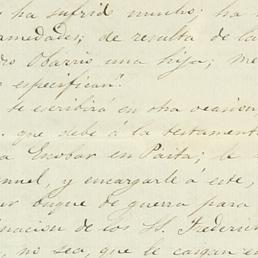 ha sufrido mucho; ha
medades; de resulta de la
Obarrio una hija, me
especifican".
se escribirá en otra ocasion
que debe a la testament
a Escobar en Paita; le
nuel, y encargarle á este,
buque de guerra para
nacion de los H. Frederic
no sea, que le caigan en